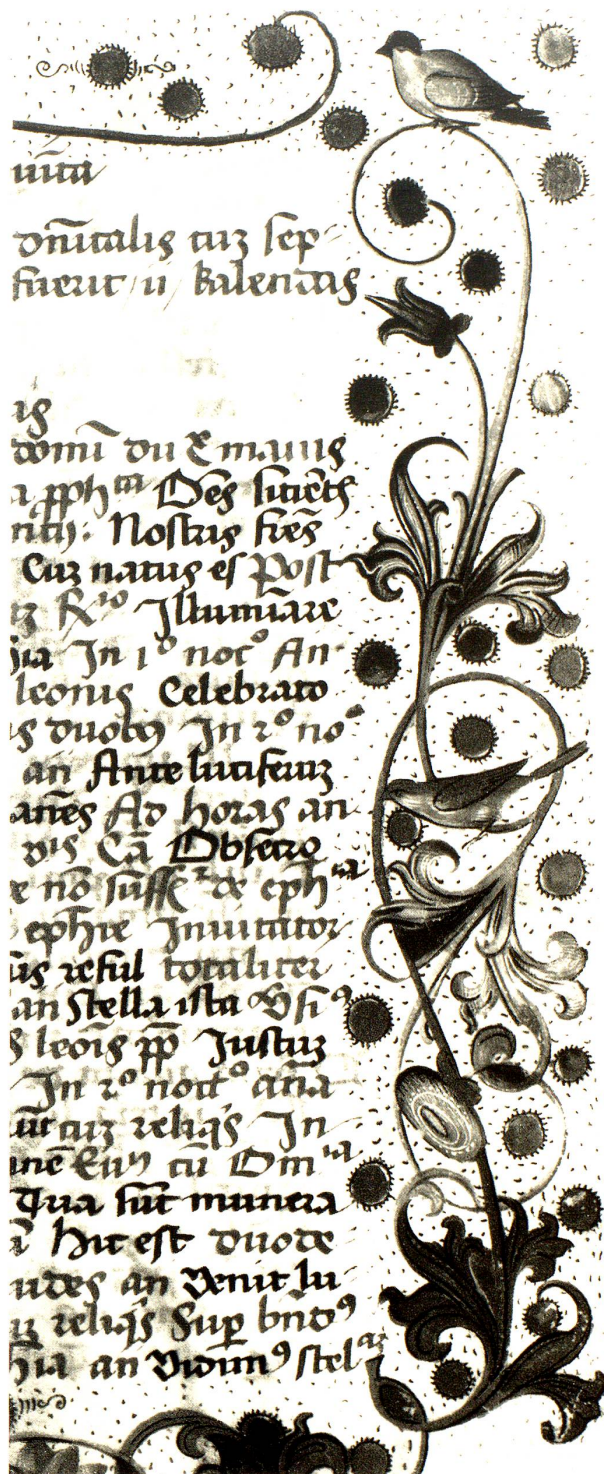 uita
dnicalis cuz sep-
fuerit / ii / kalendas
is
domi du & maius
a pphta Oes sicietes
Nostris fres
Cuz natus es Post
iz Ro Illuminare
ia In 1o noct An
leonis Celebrato
s duobz In 2o no
an Ante luciferuz
anes Ad horas an
dis Ca Obsecro
e no suffr de eph ia
ephie Inuitator
us reful totaliter
an Stella ista Vsi9
s leois pp Iustuz
In 2o noct o ana
ut cuz reliqs In
ane cu Om ia
Qua sut munera
Hic est duode
udes an Venit lu
iz reliqs Sup bnd9
hia an Vidim9 stel